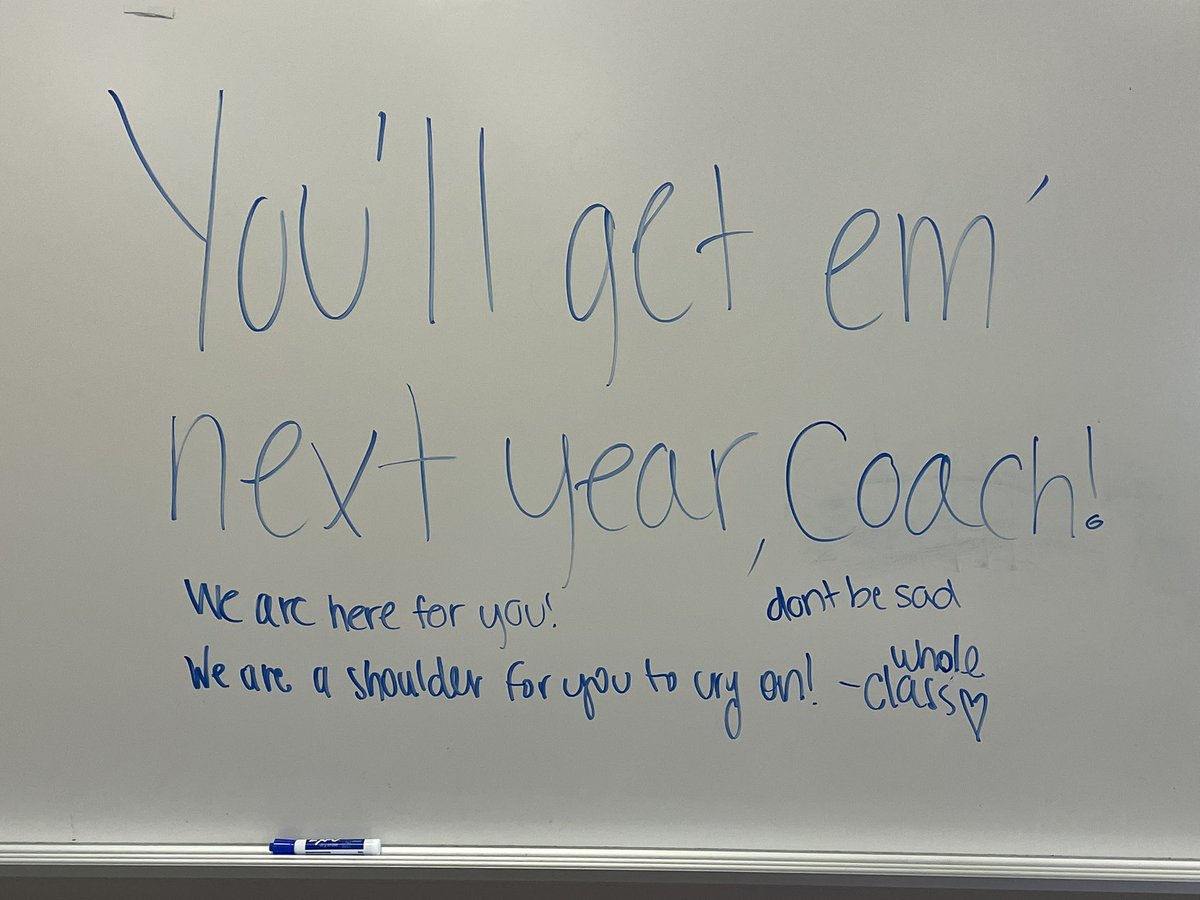 You'll get em'
next year, Coach!
We are here for you!
dont be sad
We are a shoulder for you to cry on! -whole class♡